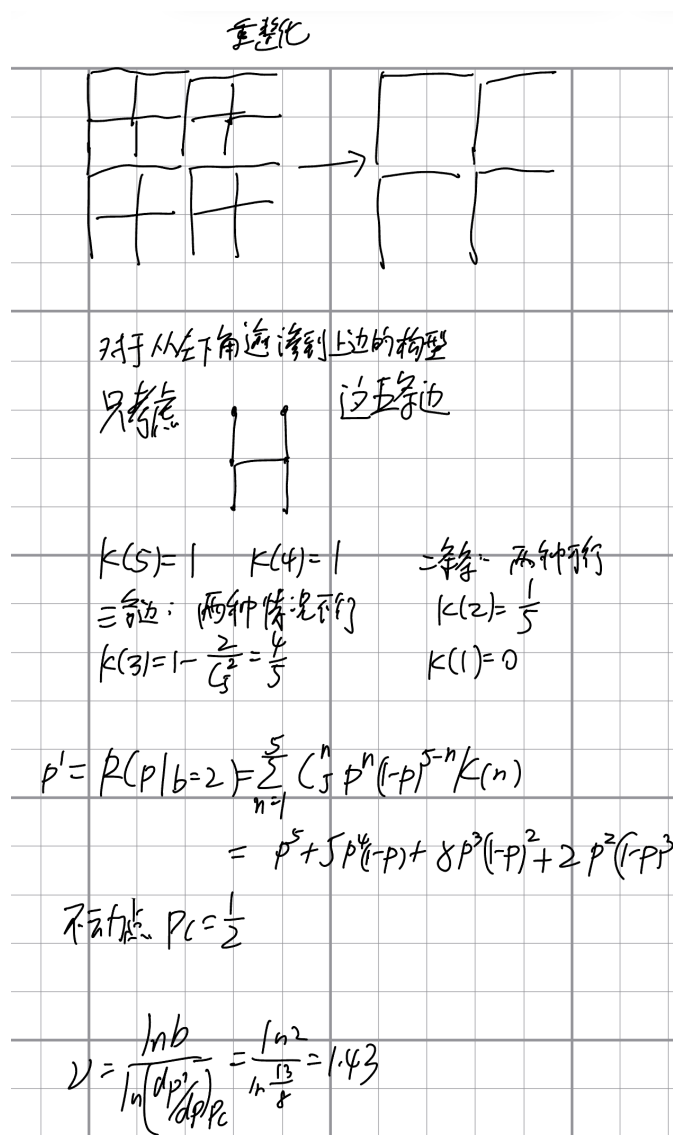 重整化
对于从左下角逾渗到上边的构型
只考虑 这五条边
K(5)=1 K(4)=1 二条条: 两种可行
三条边: 两种情况不行 K(2)=1/5
K(3)=1-2/C_5^2=4/5 K(1)=0
p'=R(p|b=2)=∑_{n=1}^{5} C_5^n p^n(1-p)^{5-n} K(n)
= p^5+5p^4(1-p)+8p^3(1-p)^2+2p^2(1-p)^3
不动点 p_c=1/2
ν=lnb/ln(dp'/dp)_{p_c}=ln2/ln 13/8=1.43